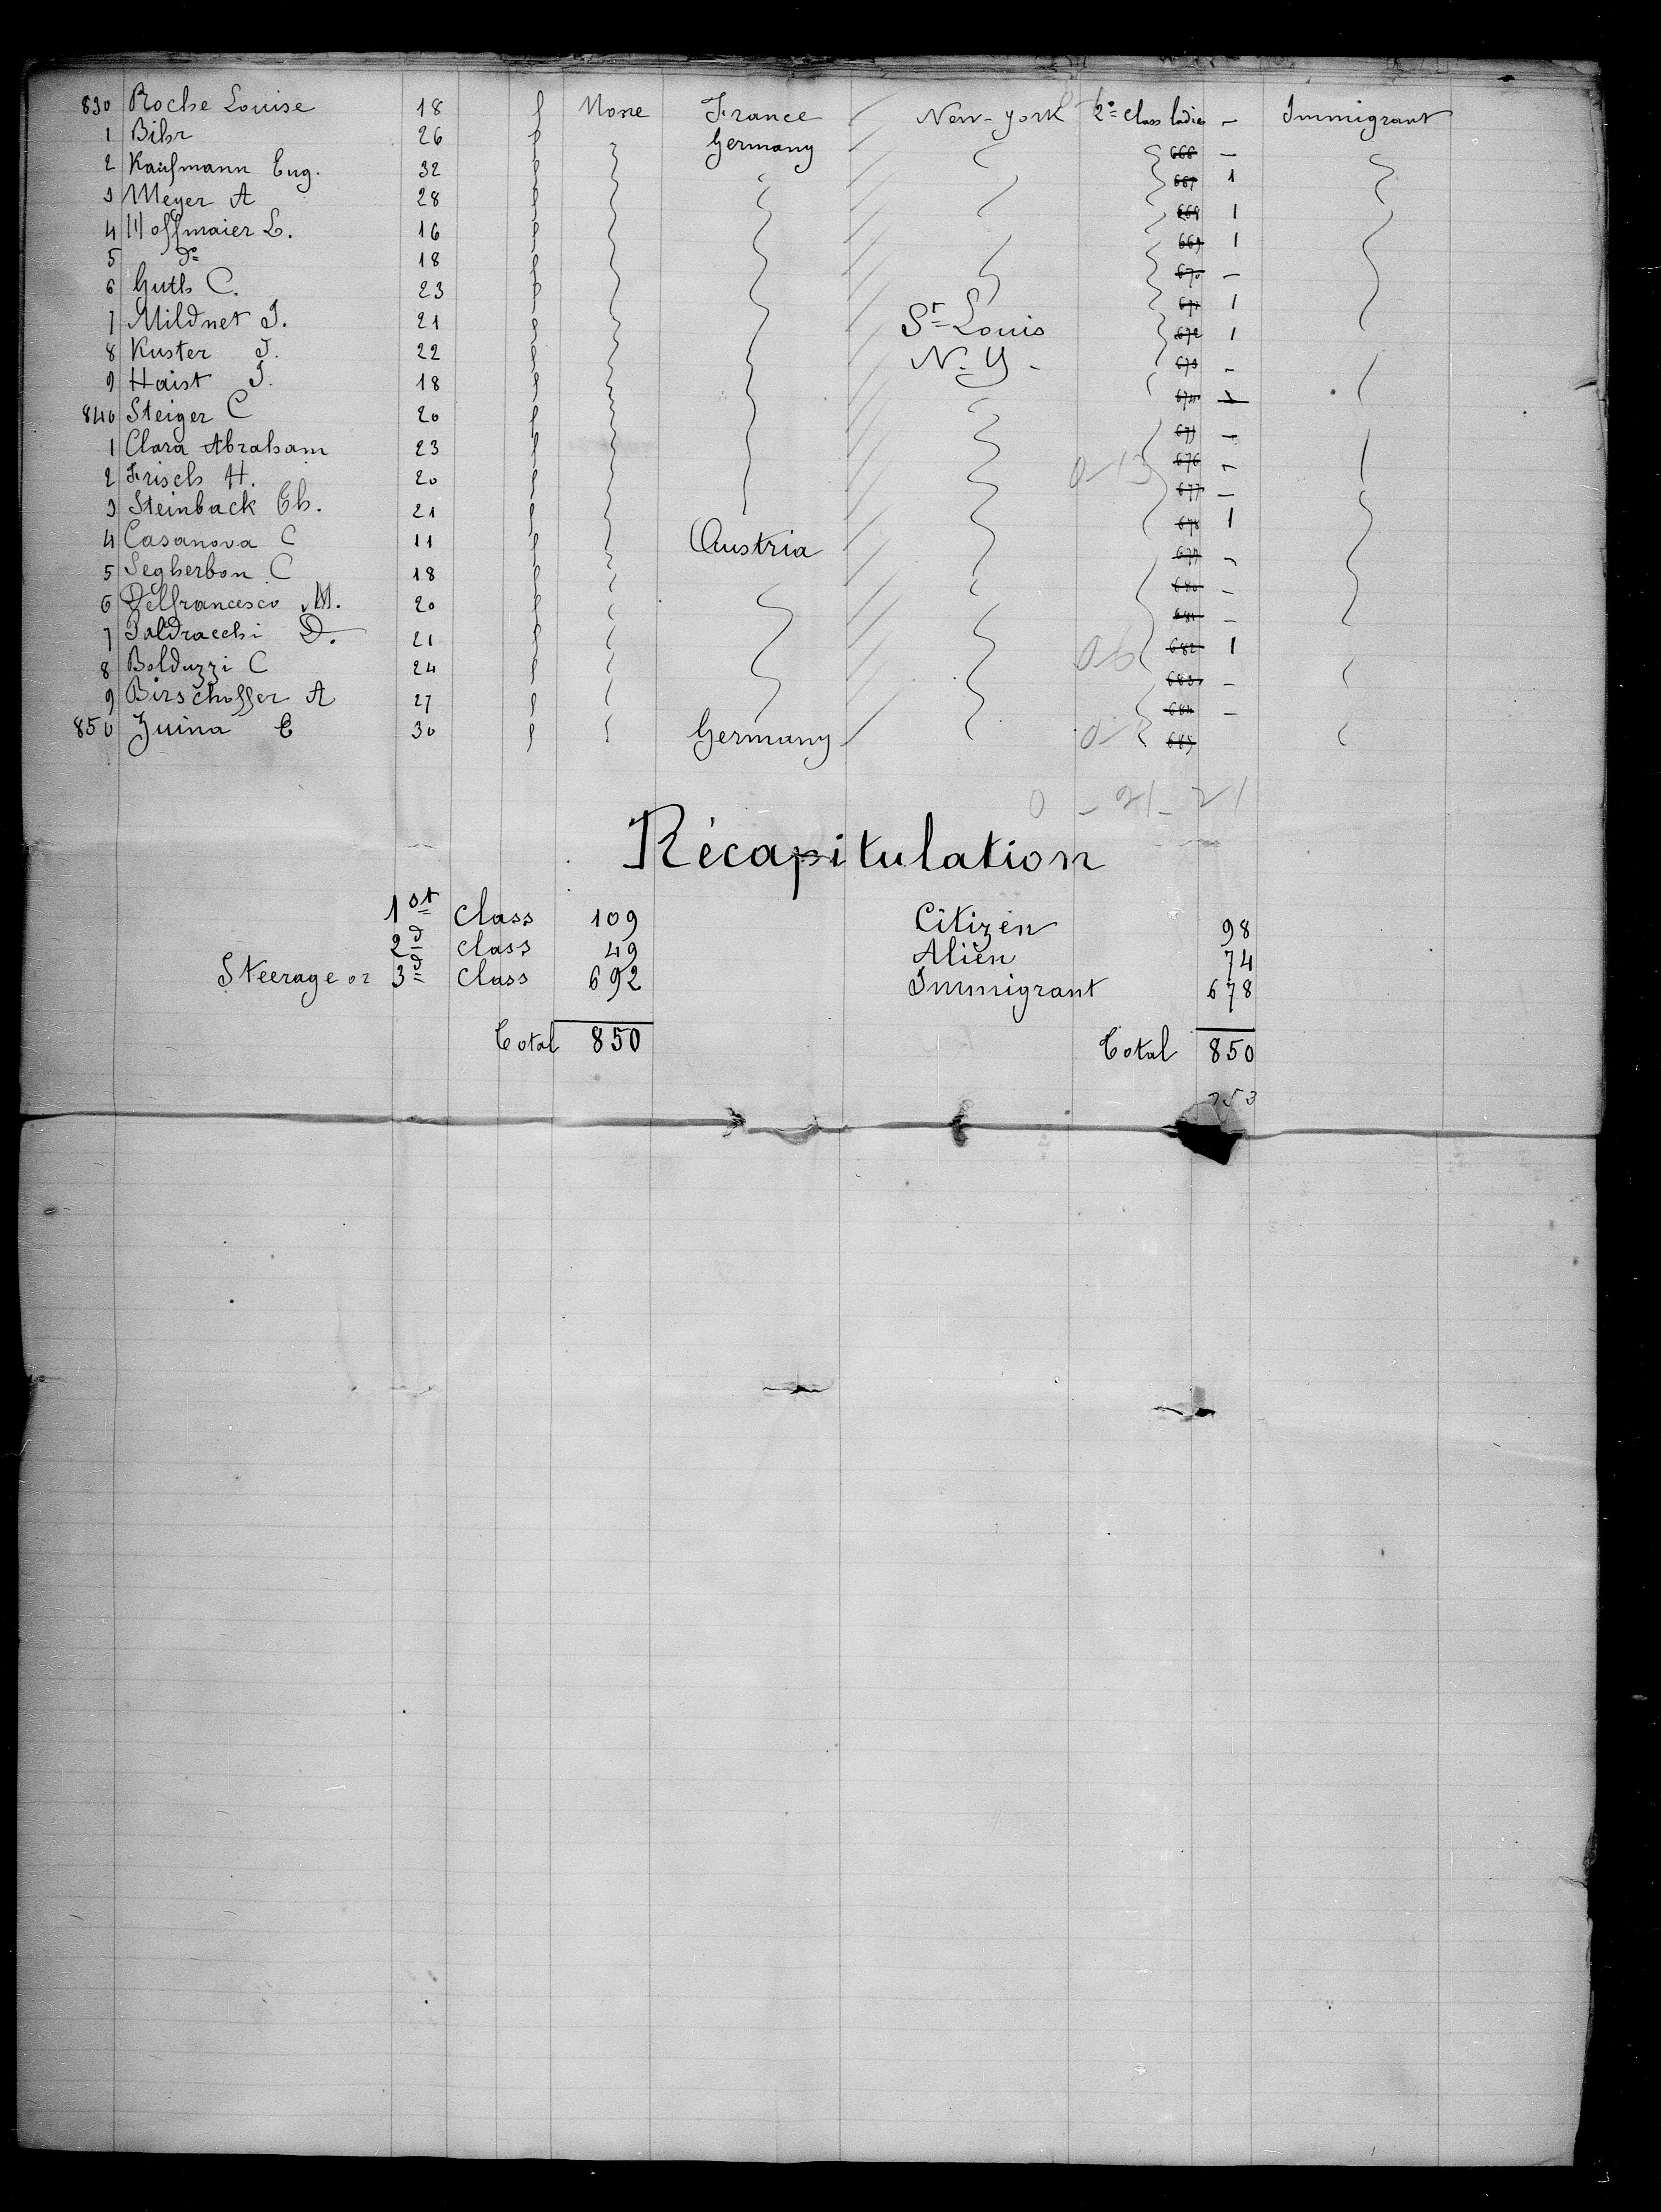 830 Roche Louise 18 f None France New-York 2e class ladies — Immigrant
1 Bihr 26 f Germany 666 —
2 Kaufmann Eug. 32 f 667 1
3 Meyer A 28 f 668 1
4 Hoffmaier L. 16 f 669 1
5 do 18 f 670 —
6 Guth C. 23 f 671 1
7 Mildnet J. 21 f St Louis 672 1
8 Kuster J. 22 f N. Y. 673 —
9 Haist J. 18 f 674 —
840 Steiger C 20 f 675 —
1 Clara Abraham 23 f 676 —
2 Frisch H. 20 f 677 —
3 Steinback Ch. 21 f 678 1
4 Casanova C 11 f Austria 679 —
5 Segherbon C 18 f 680 —
6 Delfrancesco M. 20 f 681 —
7 Paldracchi D. 21 f 682 1
8 Bolduzzi C 24 f 683 —
9 Birschoffer A 27 f 684 —
850 Zuina C 30 f Germany 685
0 - 21 - 21
Récapitulation
1st class 109 Citizen 98
2d class 49 Alien 74
Steerage or 3d class 692 Immigrant 678
Total 850 Total 850